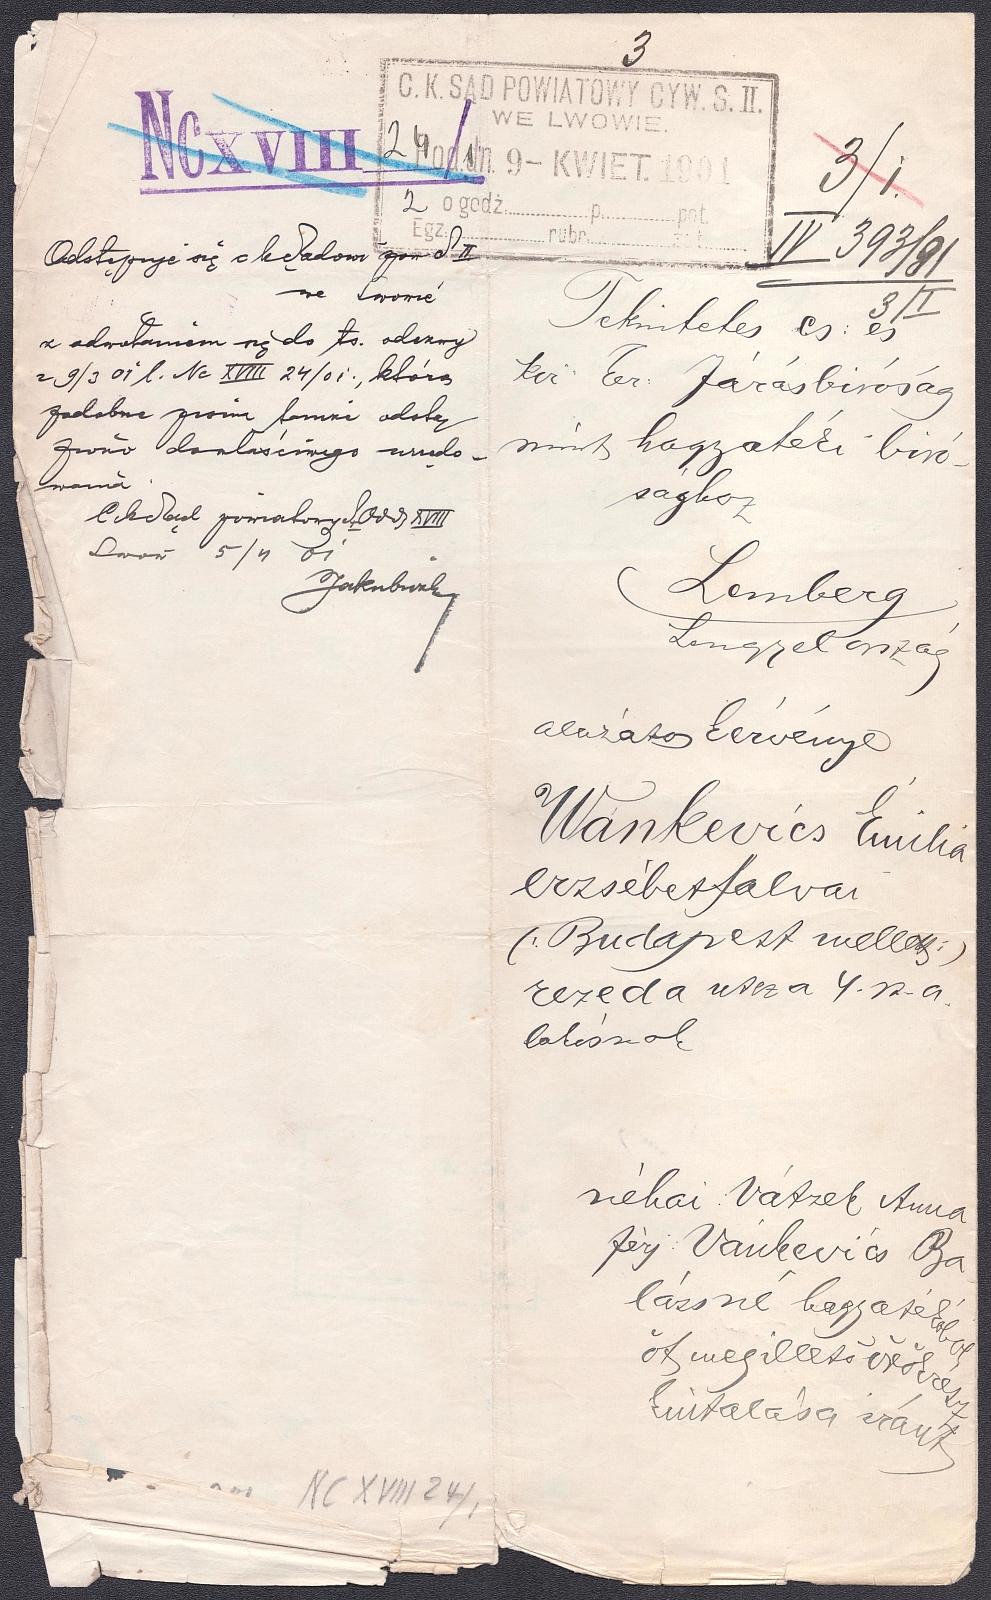 3
C. K. SĄD POWIATOWY CYW. S. II.
WE LWOWIE.
Pod. dn. 9 - KWIET. 1901
2 o godz. p. pot.
Egz. rubr.
Nc XVIII 24/1
3/1.
IV 393/91
3/I
Odstępuje się c k Sądowi pow S II
we Lwowie
z odwołaniem się do ts. odezwy
z 9/3 01 l. Nc XVIII 24/01., którą
podobne pismo tamże odstą
piono do właściwego urzędo-
wania.
C k Sąd powiatowy S. I Odd XVIII
Lwów 5/4 01
Tekintetes cs: és
kir: ker: Járásbíróság
mint hagyatéki biró-
sághoz
Lemberg
Lengyelország
alázatos kérvénye
Wánkevics Emilia
erzsébetfalvai
(: Budapest mellett :)
rezeda utcza 4. sz. a.
lakósnak
néhai Vátzek Anna
férj: Vánkevics Ba
lázsné hagyatékából
őt megillető örökrész
kiutalása iránt
NC XVIII 24/1